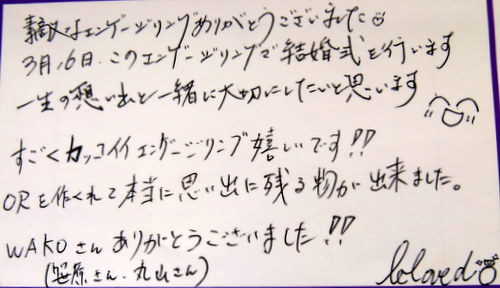 素敵なエンゲージリングありがとうございました
3月16日、このエンゲージリングで結婚式を行います
一生の想い出と一緒に大切にしたいと思います
すごくカッコイイエンゲージリング嬉しいです!!
ORを作くれて本当に思い出に残る物が出来ました。
WAKOさんありがとうございました!!
(笹原さん、丸山さん)
beloved